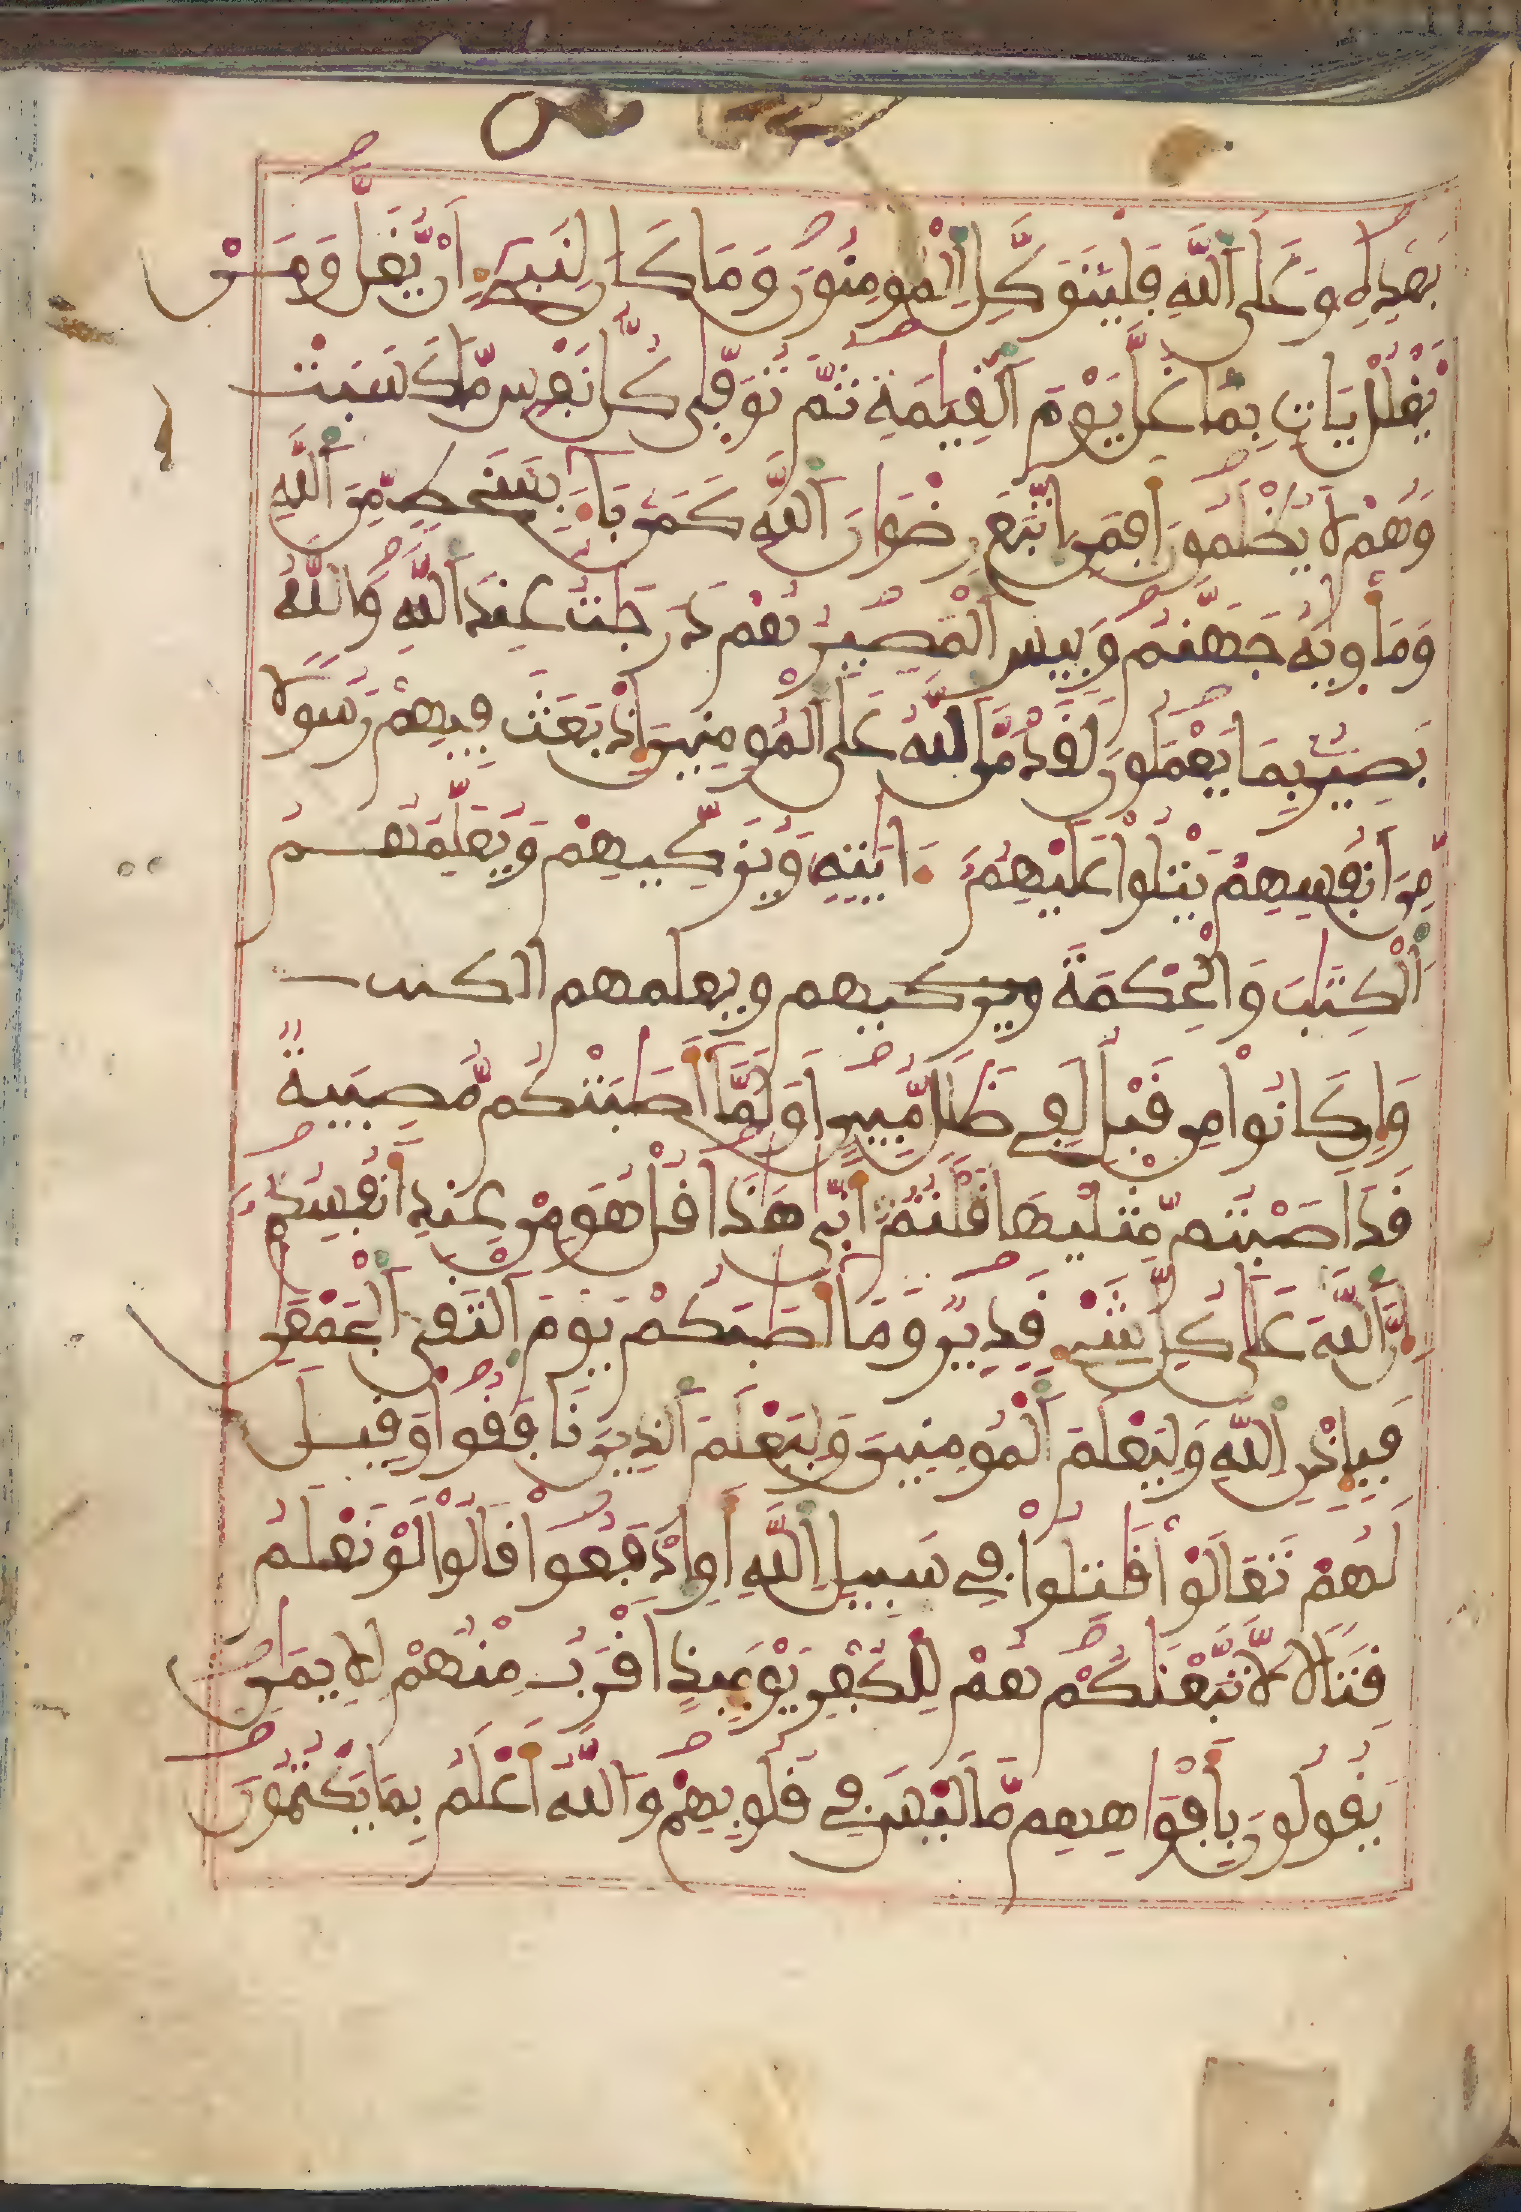 بَعْدِهِ وَعَلَى اَللَّهِ فَلْيَتَوَكَّلِ اِلْمُومِنُونَ وَمَا كَانَ لِنَبِيٓءٍ اَنْ يُّغَلَّ وَمَنْ
يَّغْلُلْ يَاتِ بِمَا غَلَّ يَوْمَ اَلْقِيَٰمَةِ ثُمَّ تُوَفّٰى كُلُّ نَفْسٍ مَّا كَسَبَتْ
وَهُمْ لَا يُظْلَمُونَ أَفَمَنِ اِتَّبَعَ رِضْوَٰنَ اَللَّهِ كَمَنۢ بَآءَ بِسَخَطٍ مِّنَ اَللَّهِ
وَمَأْوٜيٰهُ جَهَنَّمُ وَبِيسَ اَلْمَصِيرُ هُمْ دَرَجَٰتٌ عِندَ اَللَّهِ وَاللَّهُ
بَصِيرٌۢ بِمَا يَعْمَلُونَ لَقَدْ مَنَّ اَللَّهُ عَلَى اَلْمُومِنِينَ إِذْ بَعَثَ فِيهِمْ رَسُولًا
مِّنَ اَنفُسِهِمْ يَتْلُواْ عَلَيْهِمُۥٓ ءَايَٰتِهِۦ وَيُزَكِّيهِمْ وَيُعَلِّمُهُمُ
اُلْكِتَٰبَ وَالْحِكْمَةَ ويزكيهم ويعلمهم الكتب
وَإِن كَانُواْ مِن قَبْلُ لَفِي ضَلَٰلٍ مُّبِينٍ اَوَلَمَّآ أَصَٰبَتْكُم مُّصِيبَةٌ
قَدَ اَصَبْتُم مِّثْلَيْهَا قُلْتُمُۥٓ أَنّٰى هَٰذَا قُلْ هُوَ مِنْ عِندِ أَنفُسِكُمُۥٓ
إِنَّ اَللَّهَ عَلَىٰ كُلِّ شَيْءٍ قَدِيرٌ وَمَآ أَصَٰبَكُمْ يَوْمَ اَلْتَقَى اَلْجَمْعَٰنِ
فَبِإِذْنِ اِللَّهِ وَلِيَعْلَمَ اَلْمُومِنِينَ وَلِيَعْلَمَ اَلذِينَ نَافَقُواْ وَقِيلَ
لَهُمْ تَعَالَوْاْ قَٰتِلُواْ فِي سَبِيلِ اِللَّهِ أَوِ اِدْفَعُواْ قَالُواْ لَوْ نَعْلَمُ
قِتَالًا لَّاتَّبَعْنَٰكُمْ هُمْ لِلْكُفْرِ يَوْمَئِذٍ اَقْرَبُ مِنْهُمْ لِلِايمَٰنِ
يَقُولُونَ بِأَفْوَاهِهِم مَّا لَيْسَ فِي قُلُوبِهِمْ وَاللَّهُ أَعْلَمُ بِمَا يَكْتُمُونَ